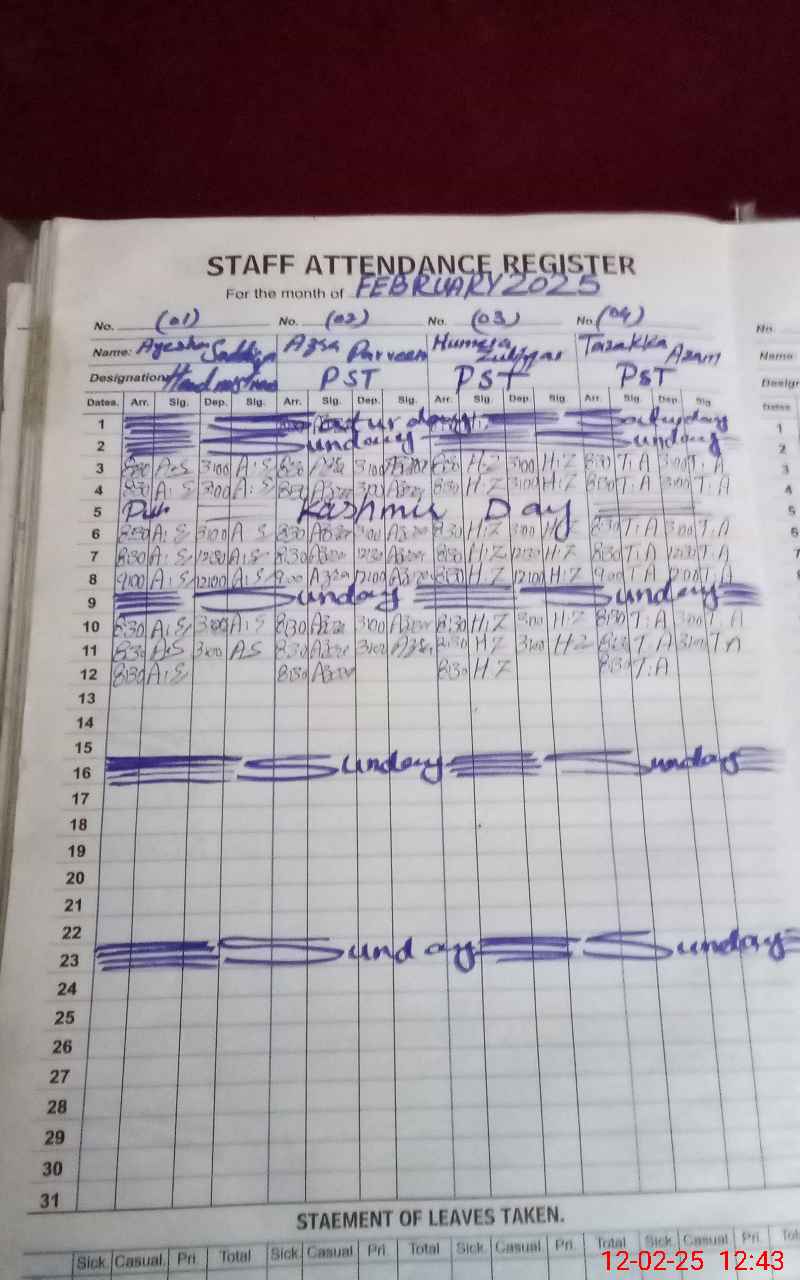 STAFF ATTENDANCE REGISTER
For the month of FEBRUARY 2025
No. (01) No. (02) No. (03) No (04)
Name: Ayesha Saddiqa Azra Parveen Humera Zulfiqar Tazakka Azam
Designation PST PST PST
Dates. Arr. Sig. Dep. Sig. Arr. Sig. Dep. Sig. Arr. Sig. Dep. Sig Arr. Sig. Dep. Sig
1 Saturday Saturday
2 Sunday Sunday
3 8:30 A:S 3:00 A:S 8:30 3:00 8:30 H:Z 3:00 H:Z 8:30 T:A 3:00 T:A
4 8:30 A:S 3:00 A:S 8:30 Azra 3:00 Azra 8:30 H:Z 3:00 H:Z 8:30 T:A 3:00 T:A
5 Kashmir Day
6 8:30 A:S 3:00 A S 8:30 Azra 3:00 Azra 8:30 H:Z 3:00 H:Z 8:30 T:A 3:00 T:A
7 8:30 A:S 12:30 A:S 8:30 Azra 12:30 Azra 8:30 H:Z 12:30 H:Z 8:30 T:A 12:30 T:A
8 9:00 A:S 12:00 A:S 9:00 Azra 12:00 Azra H:Z 12:00 H:Z 9:00 T:A 12:00 T:A
9 Sunday Sunday
10 8:30 A:S 3:00 A:S 8:30 Azra 3:00 Azra 8:30 H:Z 3:00 H:Z 8:30 T:A 3:00 T:A
11 8:30 A:S 3:00 AS 8:30 Azra 3:00 Azra 8:30 HZ 3:00 HZ 8:30 T:A 3:00 T:A
12 8:30 A:S 8:30 Azra 8:30 H:Z 8:30 T:A
13
14
15
16 Sunday Sunday
17
18
19
20
21
22
23 Sunday Sunday
24
25
26
27
28
29
30
31
STAEMENT OF LEAVES TAKEN.
Sick. Casual. Pri. Total Sick. Casual Pri. Total Sick. Casual Pri. Total Sick. Casual Pri.
No
Name
Dates
1
2
3
4
5
6
7
8
9
10
11
12-02-25 12:43